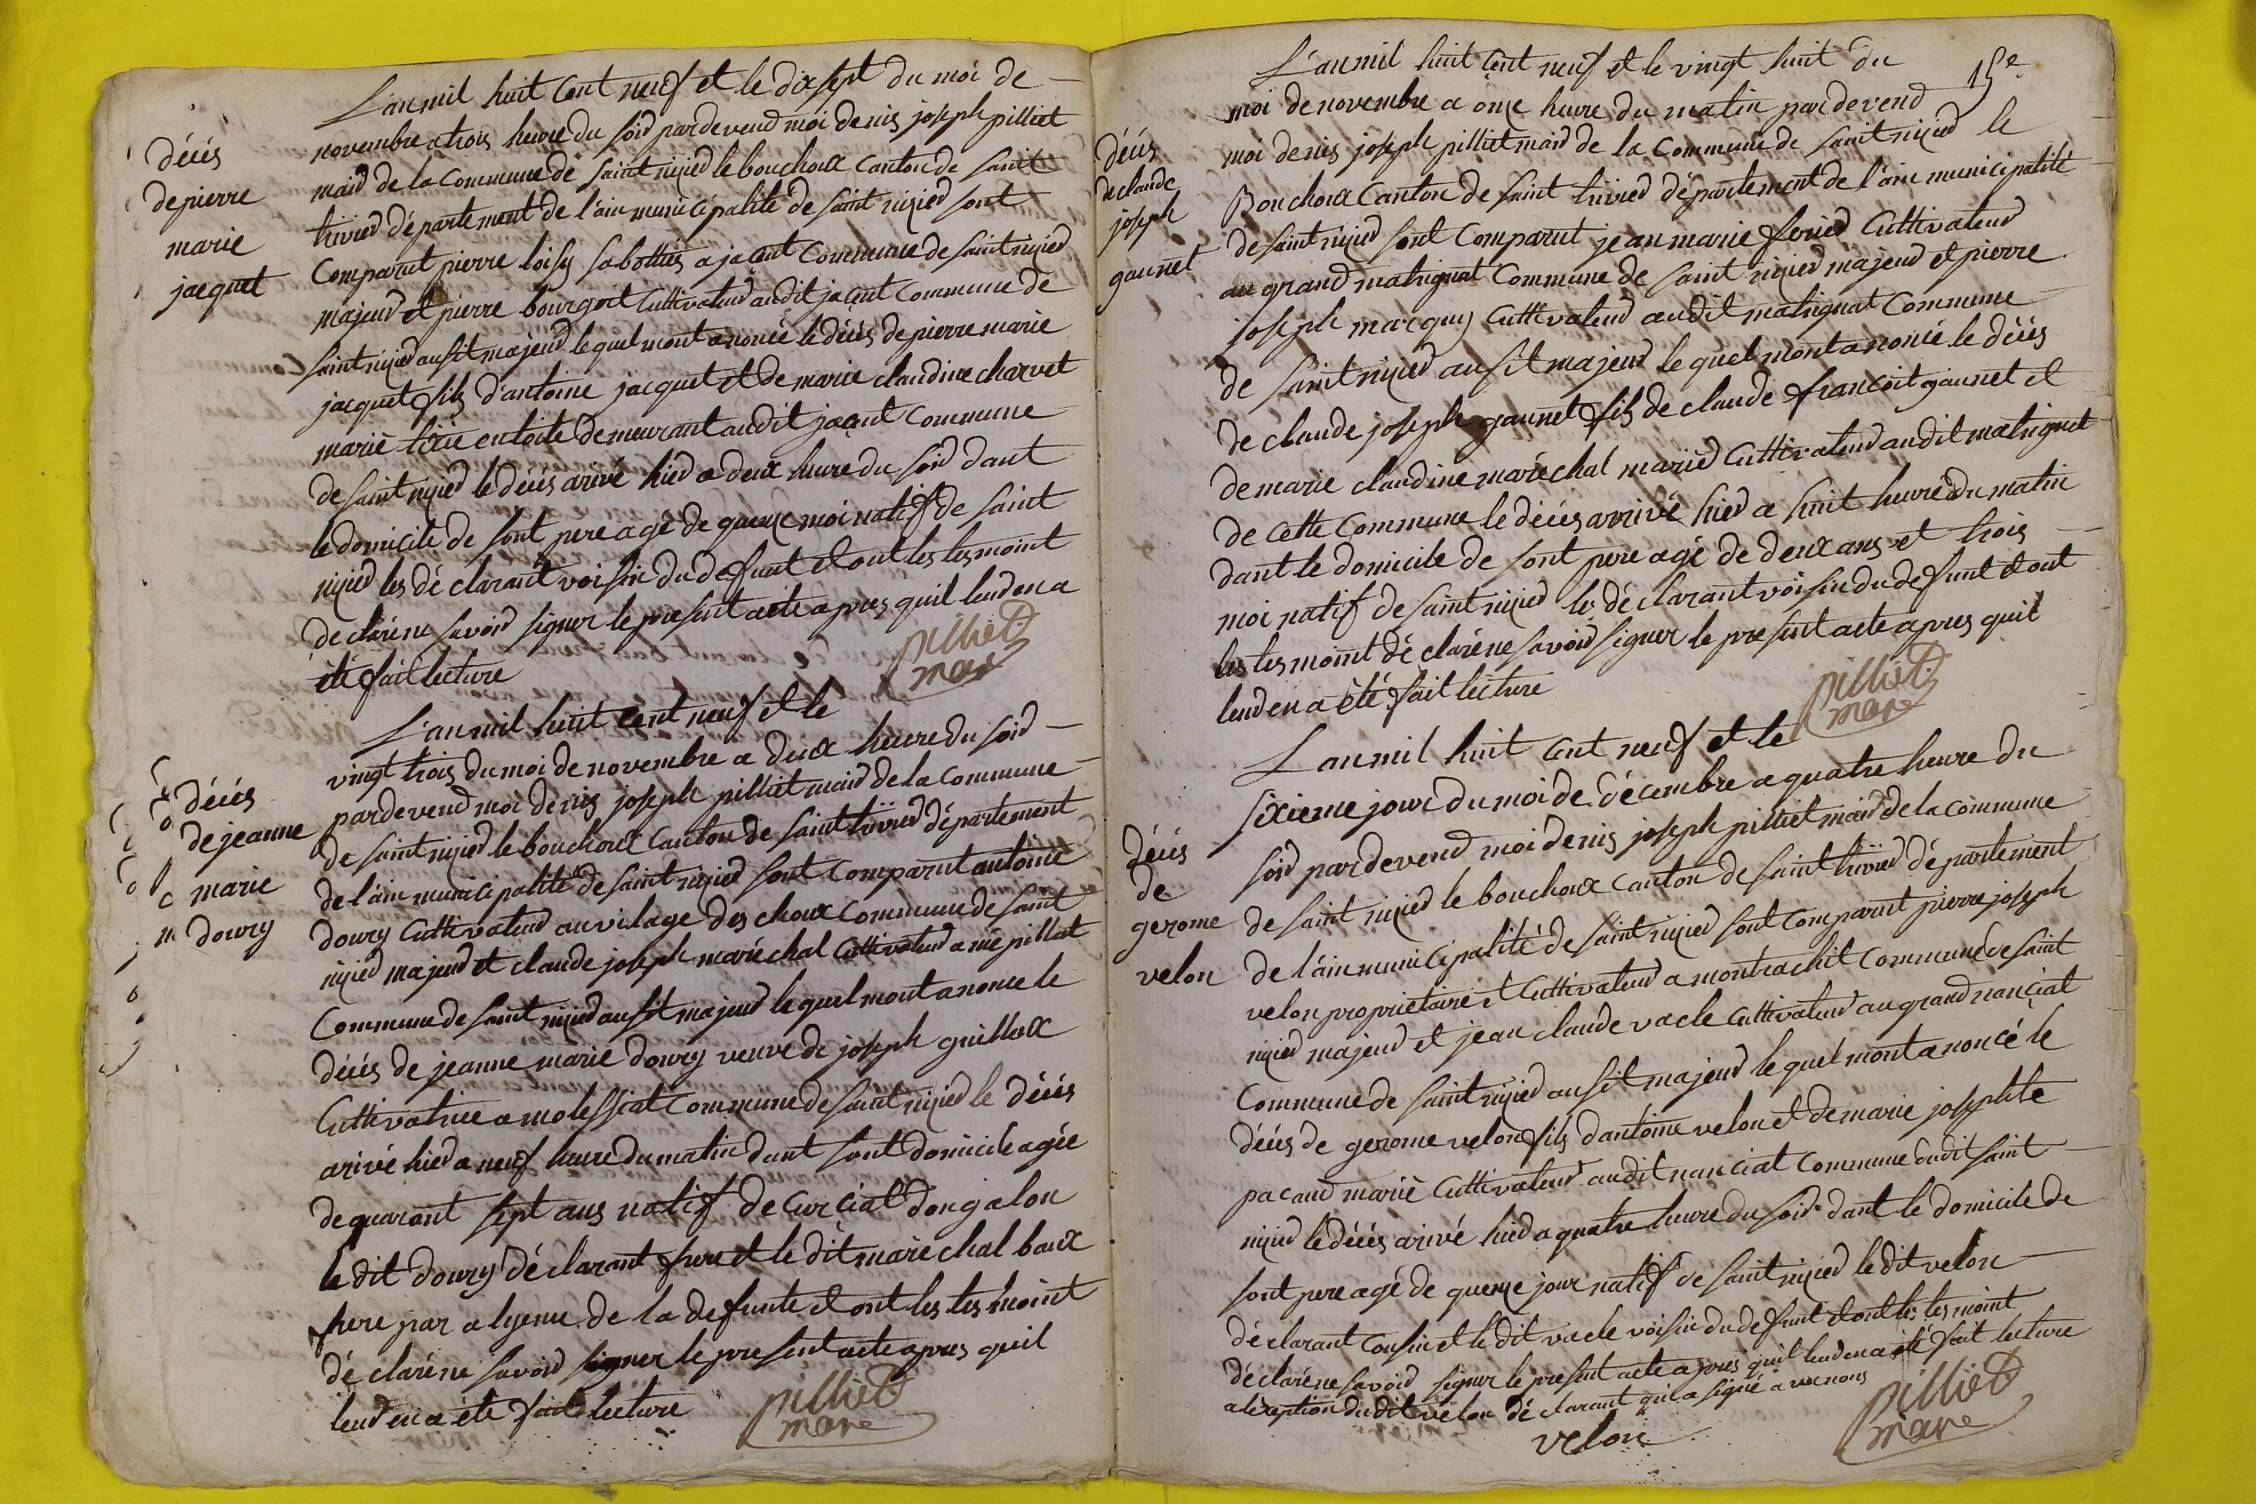 décés
de pierre
marie
jacquet
L'an mil huit Cent neuf et le dix sept du moi de
novembre a trois heure du soir par devend moi denis joseph pilliet
maird de la Commune de Saint nizied le bouchoux Canton de Saint
trivied département de l'ain municipalité de Saint nizied sont
Comparut pierre loisy sabottiés a jacent Commune de Saint nizied
majeurd et pierre bourgoit Cultivateurd audit jacent Commune de
Saint nizied ausit majeurd lequel mont anoncé le décés de pierre marie
jacquet fils d'antoine jacquet et de marie claudine charvet
marié demeurant audit jacent Commune
de Saint nizied le décés arivé hied a deux heure du soir dant
le domicile de sont pere agé de quenze moi natif de Saint
nizied les déclarant voisin du defunt et ont les tesmoint
declaré ne savoir signer le present acte apres quil leud en a
été fait lecture
pilliet
mare
décés
de jeanne
marie
doury
L'an mil huit Cent neuf et le
vingt trois du moi de novembre a deux heure du soir
par devend moi denis joseph pilliet maird de la Commune
de Saint nizied le bouchoux Canton de Saint trivied département
de l'ain municipalité de Saint nizied sont Comparut antoine
doury Cultivateurd au vilage des choux Commune de Saint
nizied majeurd et claude joseph maréchal Cultivateurd a mépillat
Commune de Saint nizied ausit majeurd lequel mont anonce le
décés de jeanne marie doury veuve de joseph guilloux
Cultivatrice a molessiat Commune de Saint nizied le décés
arivé hied a neuf heure du matin dant sont domicile agée
de quarant sept ans natif de Curciat dongalon
le dit doury déclarant frere et le dit maréchal baux
frere par alyenu de la defunte et ont les tesmoint
déclaré ne savoir signer le present acte apres quil
leud en a été fait lecture
pilliet
mare
15e
décés
de claude
joseph
gaunet
L'an mil huit Cent neuf et le vingt huit du
moi de novembre a onze heure du matin par devend
moi denis joseph pilliet maird de la Commune de Saint nizied le
Bouchoux Canton de Saint trivied département de l'ain municipalité
de Saint nizied sont Comparut jean marie feried Cultivateurd
au grand matrignat Commune de Saint nizied majeurd et pierre
joseph macquy Cultivateurd audit matrignat Commune
de Saint nizied ausit majeurd lequel mont anoncé le décés
de claude joseph gaunet fils de claude francoit gaunet et
de marie claudine maréchal maried Cultivateurd audit matrignat
de cette Commune le décés arrivé hied a huit heure du matin
dant le domicile de sont pere agé de deux ans et trois
moi natif de Saint nizied les déclarant voisin du defunt et ont
les tesmoint déclaré ne savoir signer le present acte apres quil
leud en a été fait lecture
pilliet
mare
décés
de
gerome
velon
L'an mil huit Cent neuf et le
sixieme jour du moi de décembre a quatre heure du
soir par devend moi denis joseph pilliet maird de la Commune
de Saint nizied le bouchoux Canton de Saint trivied département
de l'ain municipalité de Saint nizied sont Comparut pierre joseph
velon propriétaire et Cultivateurd a montrachit Commune de Saint
nizied majeurd et jean claude vacle Cultivateurd au grand nanciat
Commune de Saint nizied ausit majeurd lequel mont anoncé le
décés de gerome velon fils dantoine velon et de marie josephte
pacaud marié Cultivateurd audit nanciat Commune dudit Saint
nizied le décés arivé hied a quatre heure du soir dant le domicile de
sont pere agé de quenze jour natif de Saint nizied le dit velon
déclarant Cousin et le dit vacle voisin du defunt et ont les tesmoint
déclaré ne savoir signer le present acte apres quil leud en a été fait lecture
a lexeption du dit velon déclarant qui a signé avec nous
velon
pilliet
mare